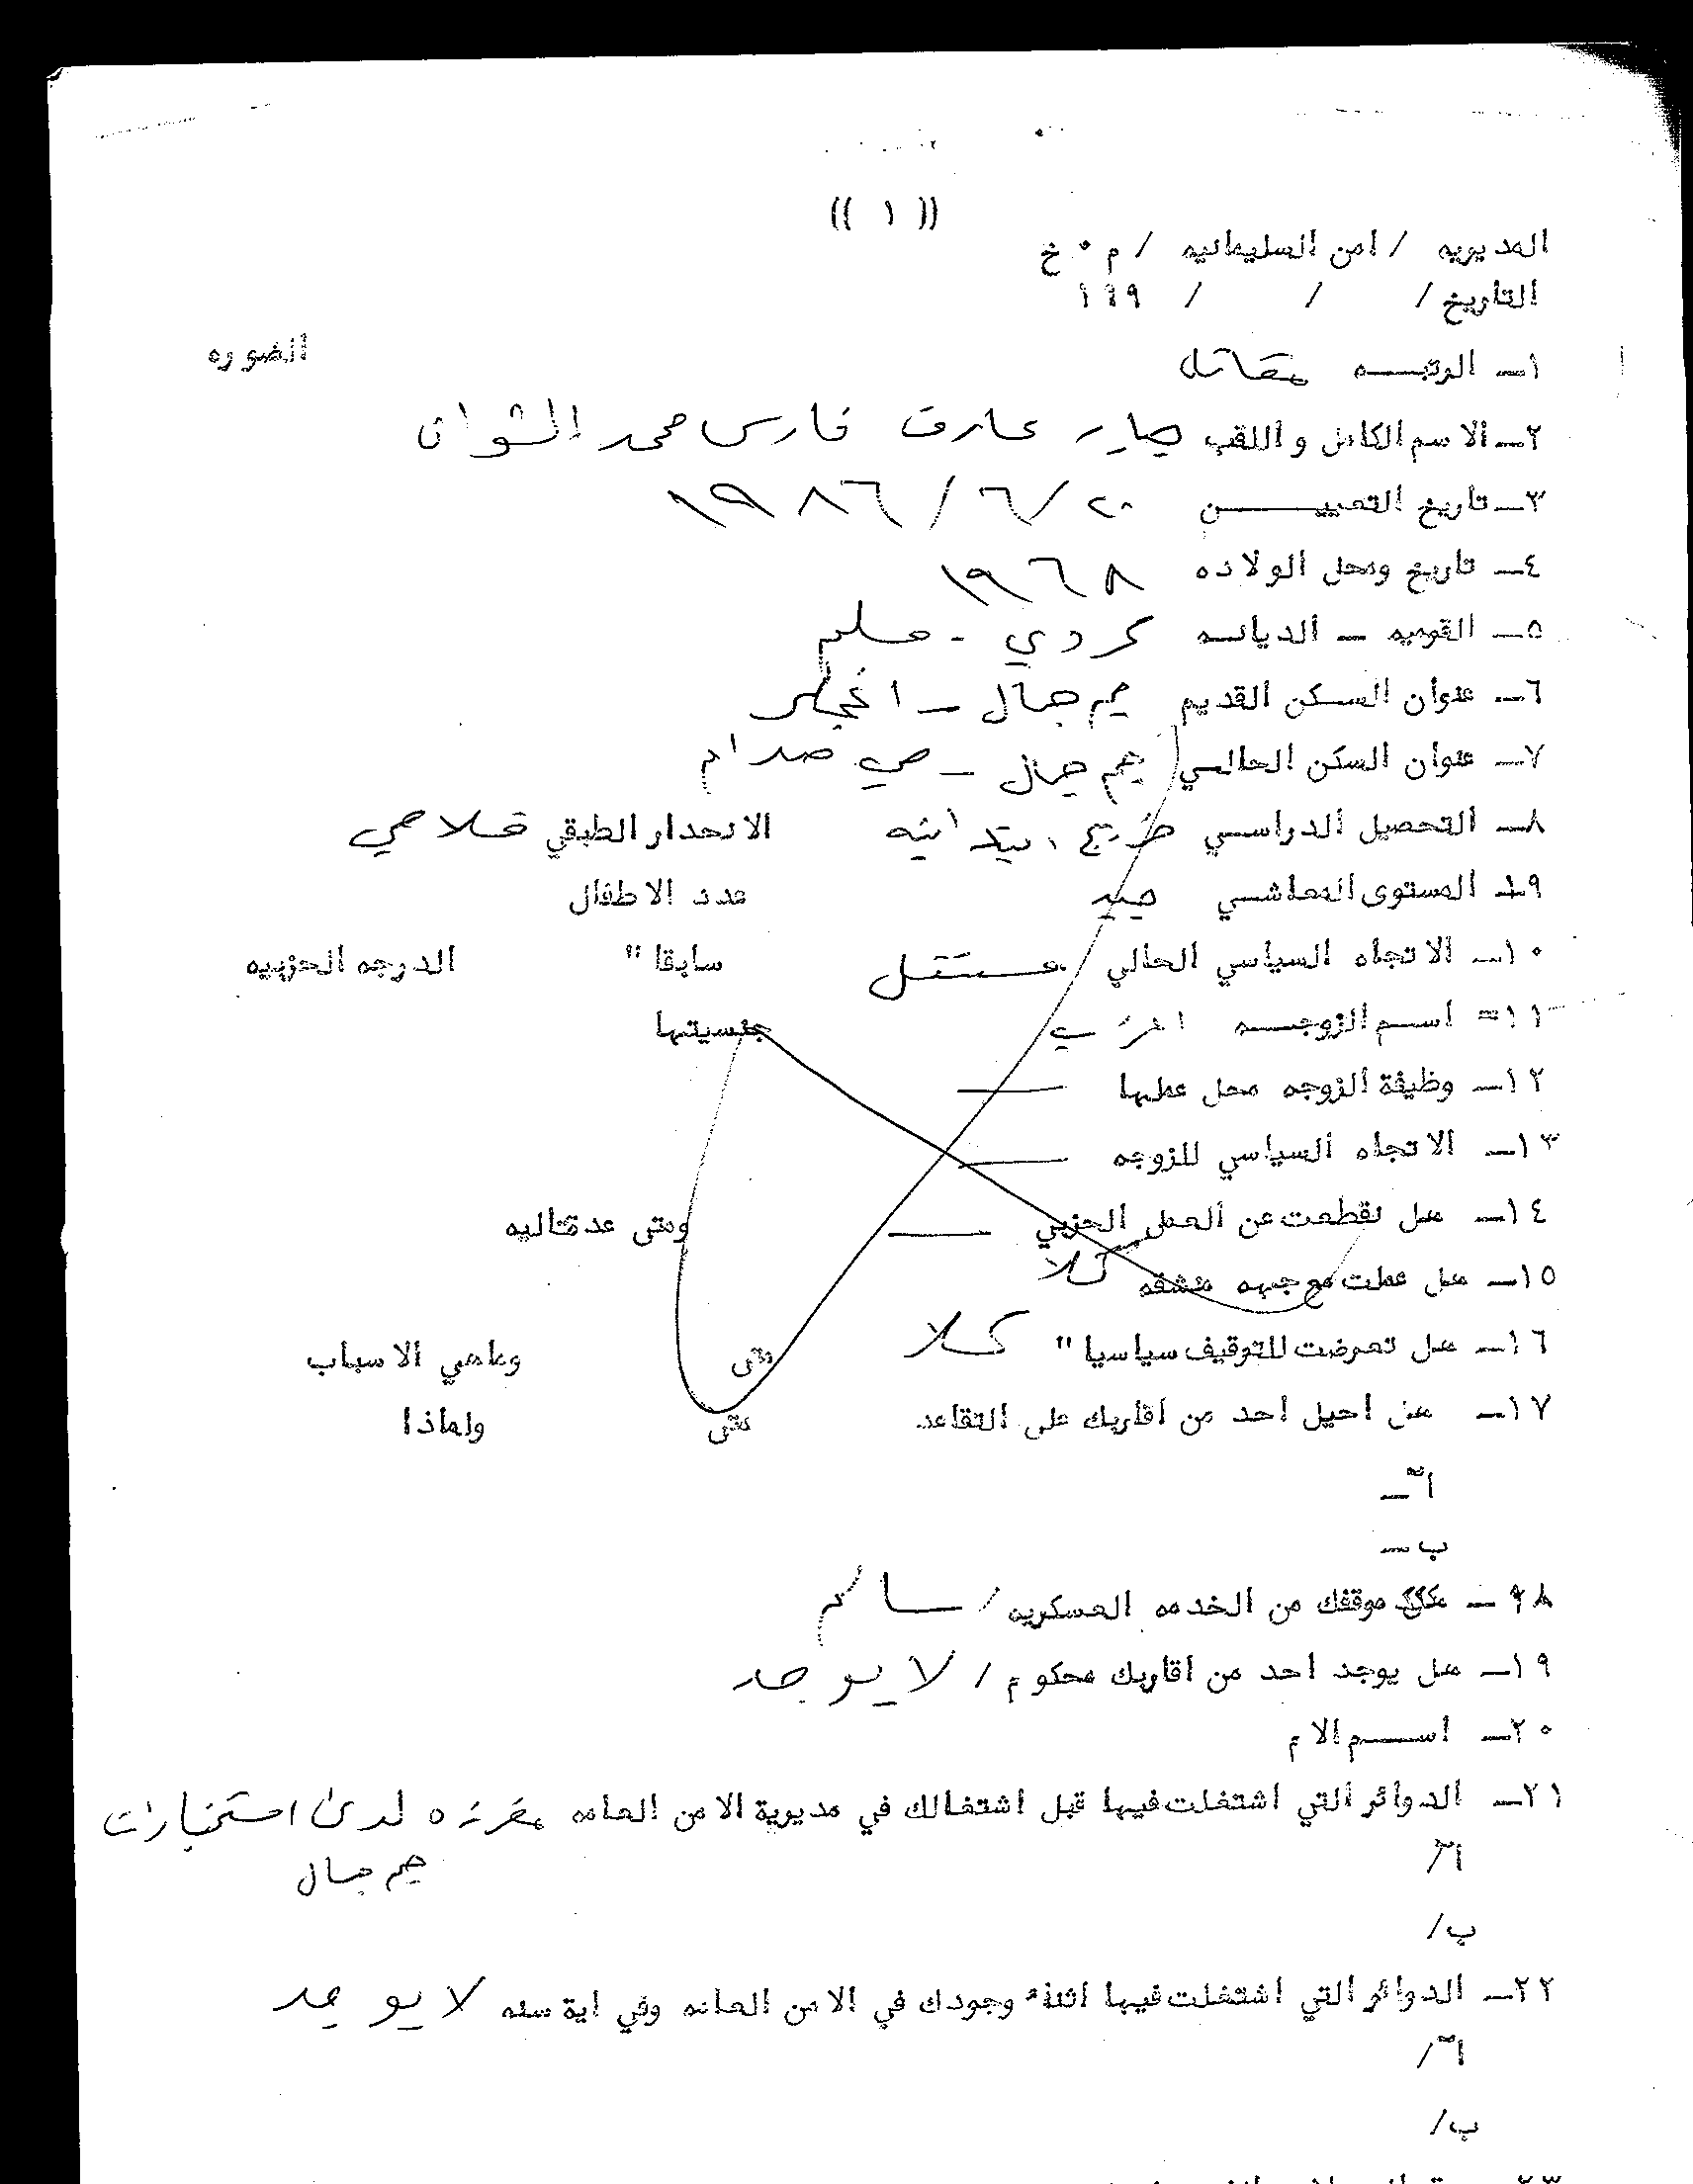 (( ١ ))
المديريه / امن السليمانيه / م٠خ
التاريخ / / / ١٩٩
الصوره
١ـ الرتبـــه مقاتل
٢ـ الاسم الكامل واللقب صابر عارف فارس محمد الشوان
٣ـ تاريخ التعييـــــن ٢٠/٦/١٩٨٦
٤ـ تاريخ ومحل الولاده ١٩٦٨
٥ـ القوميه ـ الديانـه كردي - مسلم
٦ـ عنوان السكن القديم جم جمال ـ
٧ـ عنوان السكن الحالـي جم جمال ـ حي صدام
٨ـ التحصيل الدراسـي خريج ابتدائيه الانحدار الطبقي فلاحي
٩ـ المستوى المعاشـي جيد عدد الاطفال
١٠ـ الاتجاه السياسي الحالي مستقل سابقا " الدرجه الحزبيه
١١= اسـم الزوجـــه اعزب جنسيتها
١٢ـ وظيفة الزوجه محل عملها ــــ
١٣ـ الاتجاه السياسي للزوجه ــــ
١٤ـ هل نقطعت عن العمل الحزبي ــــ ومتى عدةتاليه
١٥ـ هل عملت مع جبهه منشقه كلا
١٦ـ هل تعرضت للتوقيف سياسيا " كلا متى وماهي الاسباب
١٧ـ هل احيل احد من اقاربك على التقاعد متى ولماذا
آـ
ب ـ
١٨ ـ موقفك من الخدمه العسكريه / سالم
١٩ـ هل يوجد احد من اقاربك محكوم / لا يوجد
٢٠ـ اســـم الام
٢١ـ الدوائر التي اشتغلت فيها قبل اشتغالك في مديرية الامن العامه مفرزه لدى استخبارات
آ/ جم جمال
ب/
٢٢ـ الدوائر التي اشتغلت فيها اثناء وجودك في الامن العامه وفي اية سنه لا يوجد
آ/
ب/